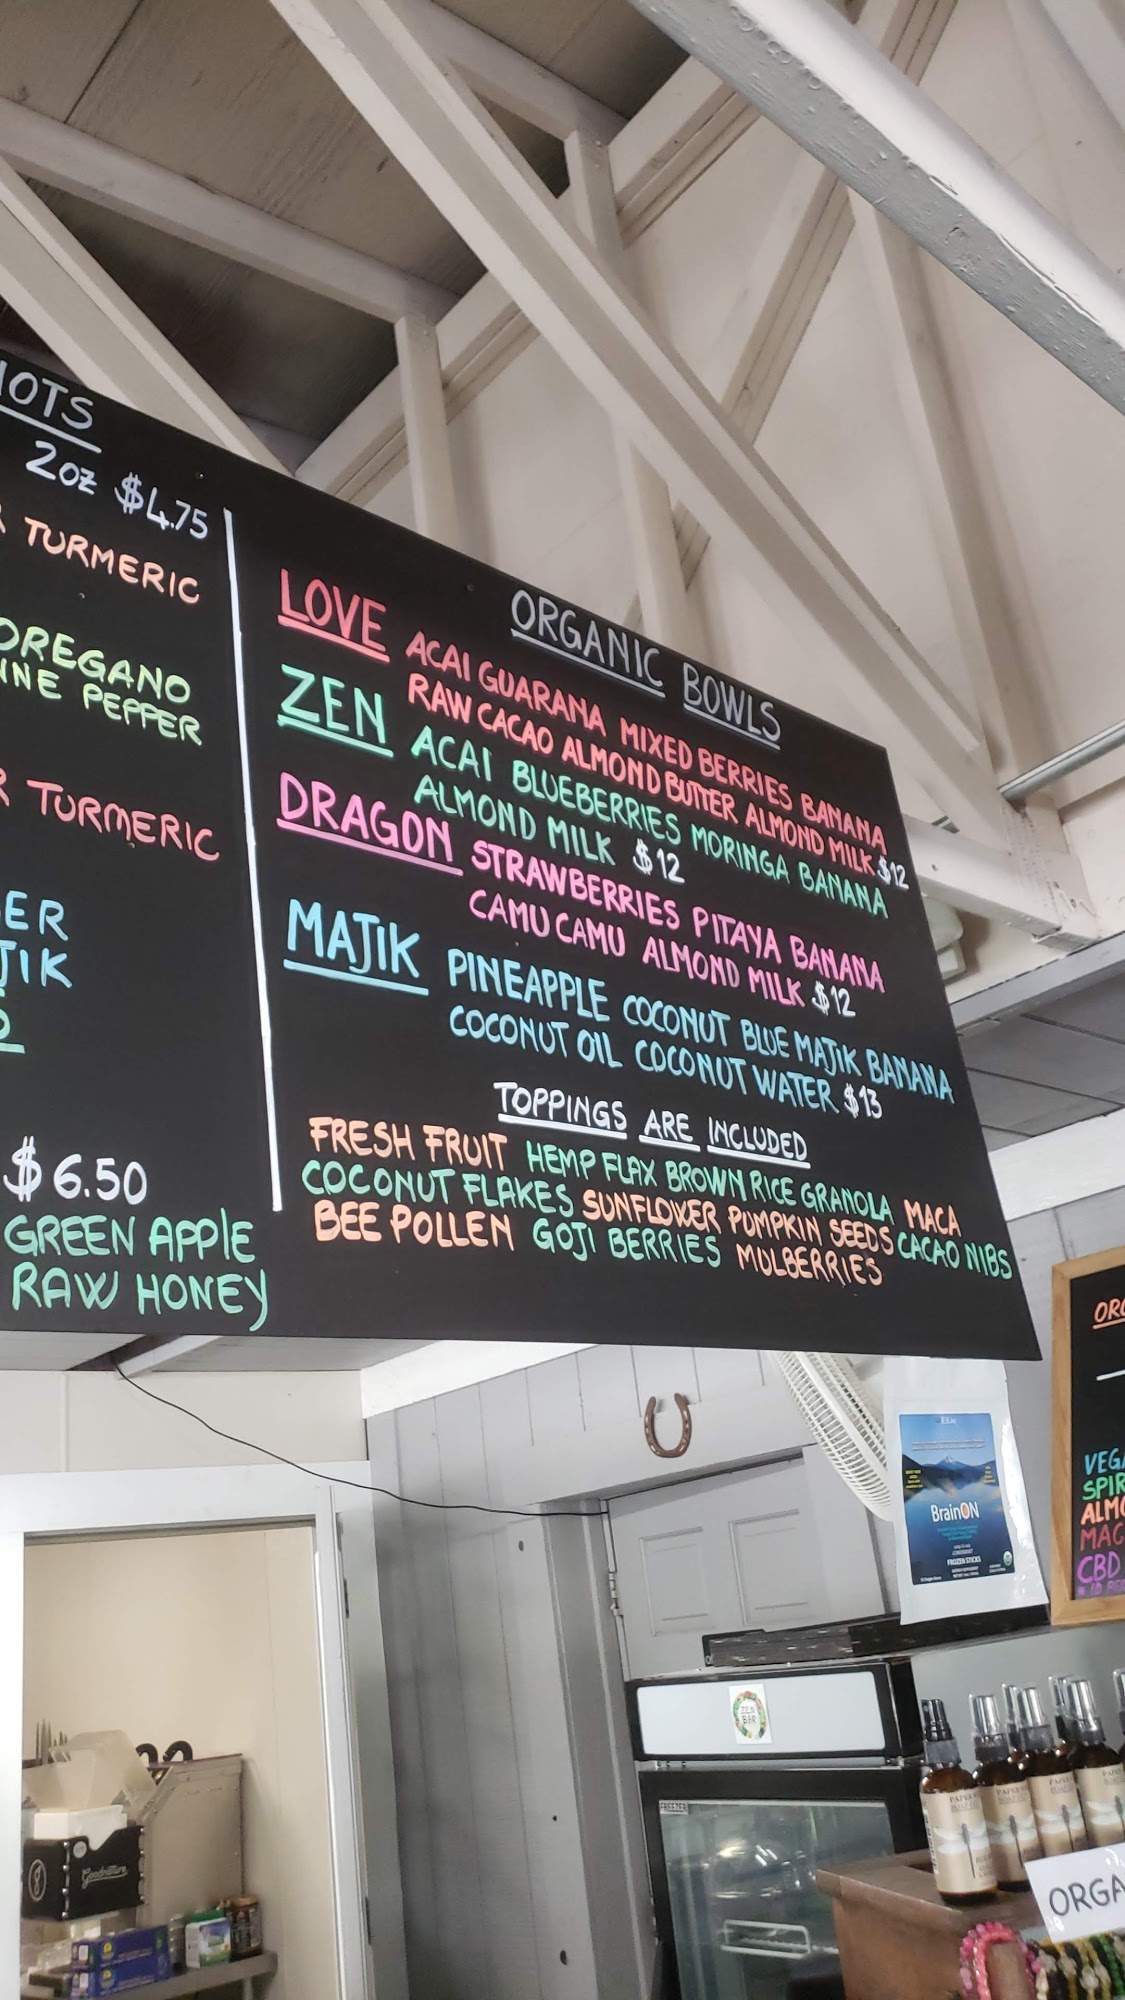 2oz $4.75
TURMERIC
OREGANO
PEPPER
TURMERIC
$6.50
GREEN APPLE
RAW HONEY
ORGANIC BOWLS
LOVE ACAI GUARANA MIXED BERRIES BANANA
RAW CACAO ALMOND BUTTER ALMOND MILK $12
ZEN ACAI BLUEBERRIES MORINGA BANANA
ALMOND MILK $12
DRAGON STRAWBERRIES PITAYA BANANA
CAMU CAMU ALMOND MILK $12
MAJIK PINEAPPLE COCONUT BLUE MAJIK BANANA
COCONUT OIL COCONUT WATER $13
TOPPINGS ARE INCLUDED
FRESH FRUIT HEMP FLAX BROWN RICE GRANOLA MACA
COCONUT FLAKES SUNFLOWER PUMPKIN SEEDS CACAO NIBS
BEE POLLEN GOJI BERRIES MULBERRIES
BrainON
FROZEN STICKS
CBD
ZEN
BAR
FREEZER
Goodnature